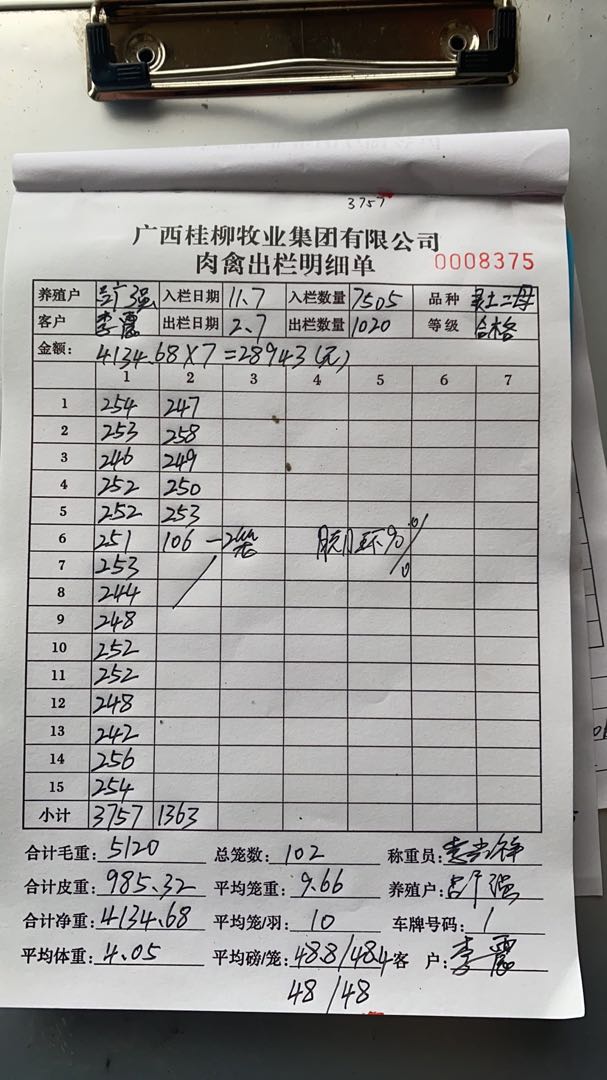 3757
广西桂柳牧业集团有限公司
肉禽出栏明细单 0008375
养殖户 强 入栏日期 11.7 入栏数量 7505 品种 土二母
客户 李震 出栏日期 2.7 出栏数量 1020 等级 合格
金额: 4134.68×7=28943(元)
1 2 3 4 5 6 7
1 254 247
2 253 258
3 246 249
4 252 250
5 252 253
6 251 106 -2笼 脱环%
7 253
8 244
9 248
10 252
11 252
12 248
13 242
14 256
15 254
小计 3757 1363
合计毛重: 5120 总笼数: 102 称重员:
合计皮重: 985.32 平均笼重: 9.66 养殖户: 强
合计净重: 4134.68 平均笼/羽: 10 车牌号码: 1
平均体重: 4.05 平均磅/笼: 48.8/48.4 客 户: 李震
48/48